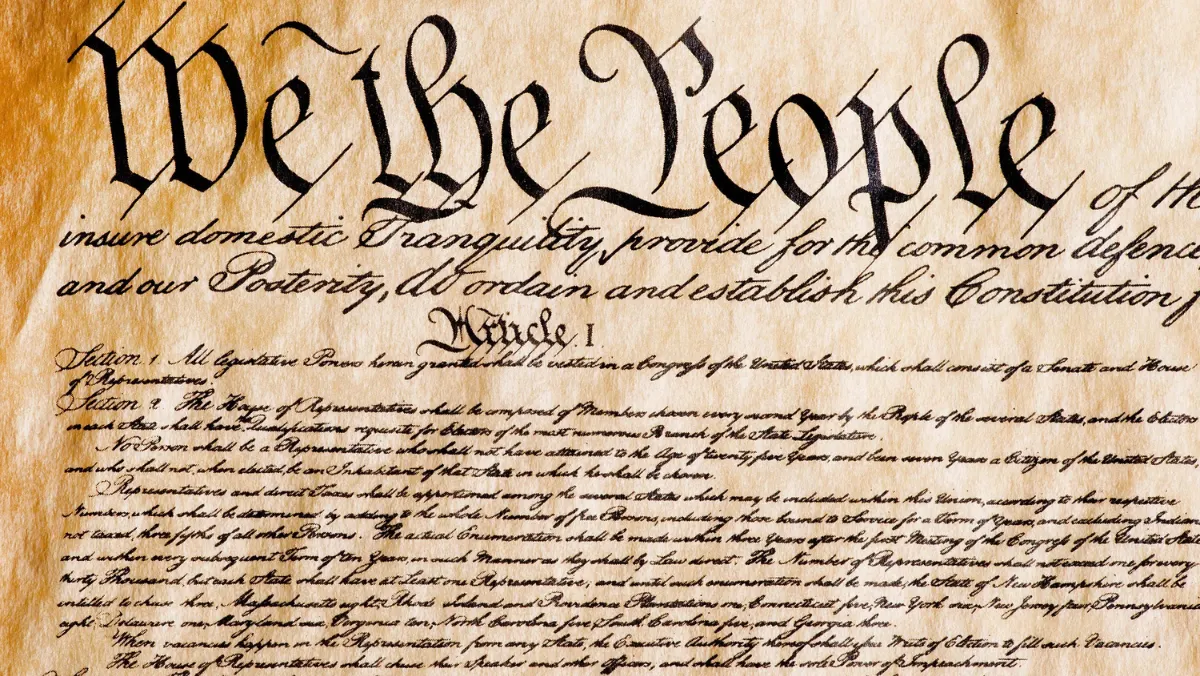 We the People of th
insure domestic Tranquility, provide for the common defence
and our Posterity, do ordain and establish this Constitution f
Article. I.
Section 1. All legislative Powers herein granted shall be vested in a Congress of the United States, which shall consist of a Senate and House
of Representatives.
Section 2. The House of Representatives shall be composed of Members chosen every second Year by the People of the several States, and the Electors
in each State shall have the Qualifications requisite for Electors of the most numerous Branch of the State Legislature.
No Person shall be a Representative who shall not have attained to the Age of twenty five Years, and been seven Years a Citizen of the United States,
and who shall not, when elected, be an Inhabitant of that State in which he shall be chosen.
Representatives and direct Taxes shall be apportioned among the several States which may be included within this Union, according to their respective
Numbers, which shall be determined by adding to the whole Number of free Persons, including those bound to Service for a Term of Years, and excluding Indians
not taxed, three fifths of all other Persons. The actual Enumeration shall be made within three Years after the first Meeting of the Congress of the United States,
and within every subsequent Term of ten Years, in such Manner as they shall by Law direct. The Number of Representatives shall not exceed one for every
thirty Thousand, but each State shall have at Least one Representative; and until such enumeration shall be made, the State of New Hampshire shall be
entitled to chuse three, Massachusetts eight, Rhode Island and Providence Plantations one, Connecticut five, New York six, New Jersey four, Pennsylvania
eight, Delaware one, Maryland six, Virginia ten, North Carolina five, South Carolina five, and Georgia three.
When vacancies happen in the Representation from any State, the Executive Authority thereof shall issue Writs of Election to fill such Vacancies.
The House of Representatives shall chuse their Speaker and other Officers; and shall have the sole Power of Impeachment.